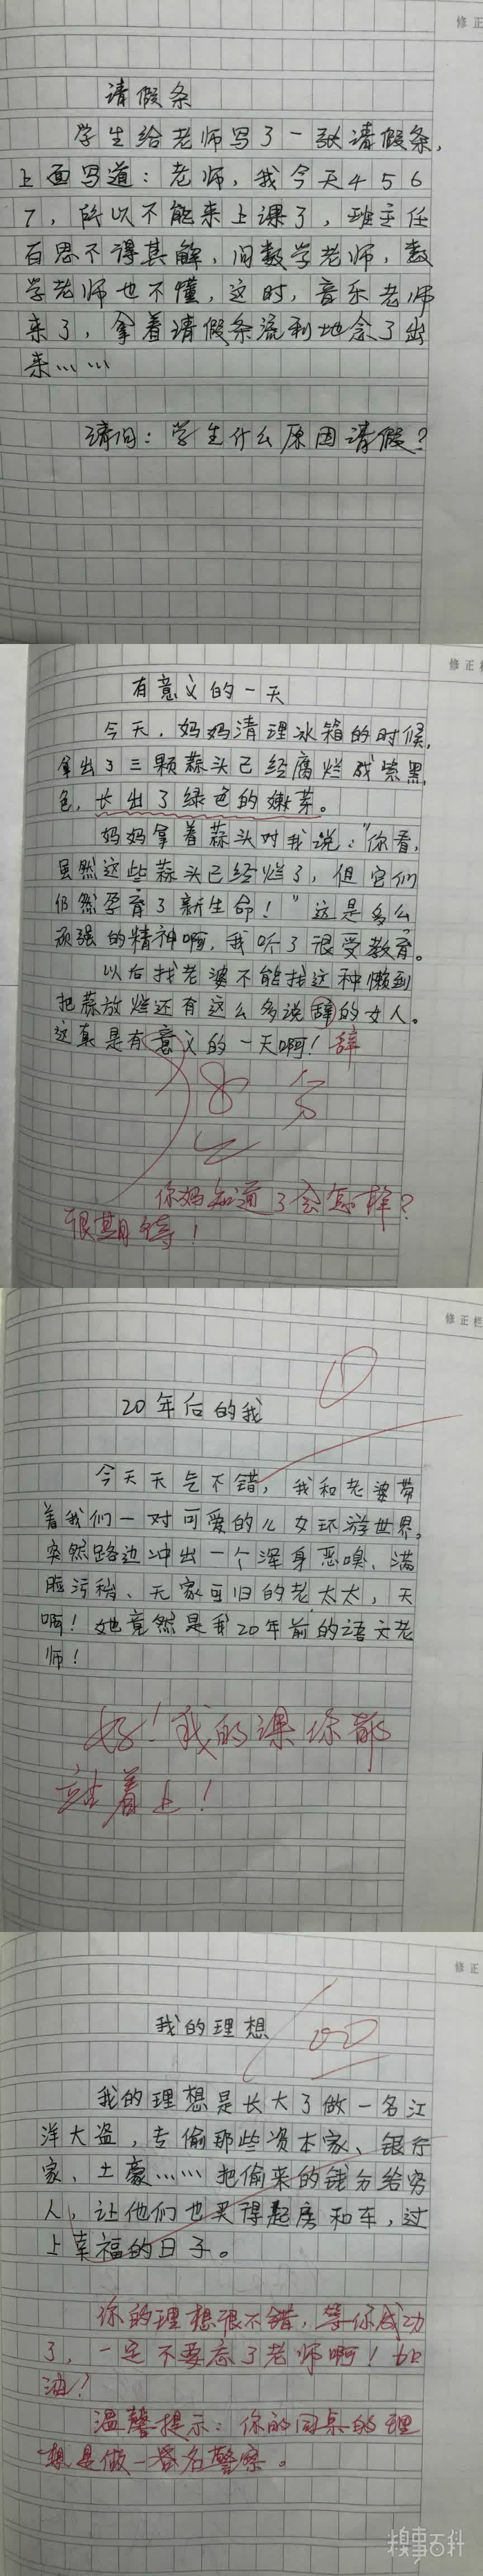 修正
请假条
学生给老师写了一张请假条,
上面写道：老师,我今天4 5 6
7,所以不能来上课了,班主任
百思不得其解,问数学老师,数
学老师也不懂,这时,音乐老师
来了,拿着请假条流利地念了出
来……
请问：学生什么原因请假？
修正
有意义的一天
今天,妈妈清理冰箱的时候,
拿出了三颗蒜头已经腐烂成紫黑
色,长出了绿色的嫩芽。
妈妈拿着蒜头对我说："你看,
虽然这些蒜头已经烂了,但它们
仍然孕育了新生命！"这是多么
顽强的精神啊,我听了很受教育。
以后找老婆不能找这种懒到
把蒜放烂还有这么多说辞的女人。
这真是有意义的一天啊！辞
你妈知道了会怎样?
很期待！
修正栏
20年后的我
今天天气不错,我和老婆带
着我们一对可爱的儿女环游世界。
突然路边冲出一个浑身恶嗅、满
脸污秽、无家可归的老太太,天
啊！她竟然是我20年前的语文老
师！
好！我的课你都
站着上！
修正
我的理想
100
我的理想是长大了做一名江
洋大盗,专偷那些资本家、银行
家、土豪……把偷来的钱分给穷
人,让他们也买得起房和车,过
上幸福的日子。
你的理想很不错,等你成功
了,一定不要忘了老师啊！加
油！
温馨提示：你的同桌的理
想是做一名警察。
糗事百科